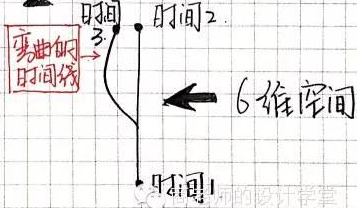 时间3.
时间2.
弯曲的
时间线
6维空间
时间1
师的设计学堂